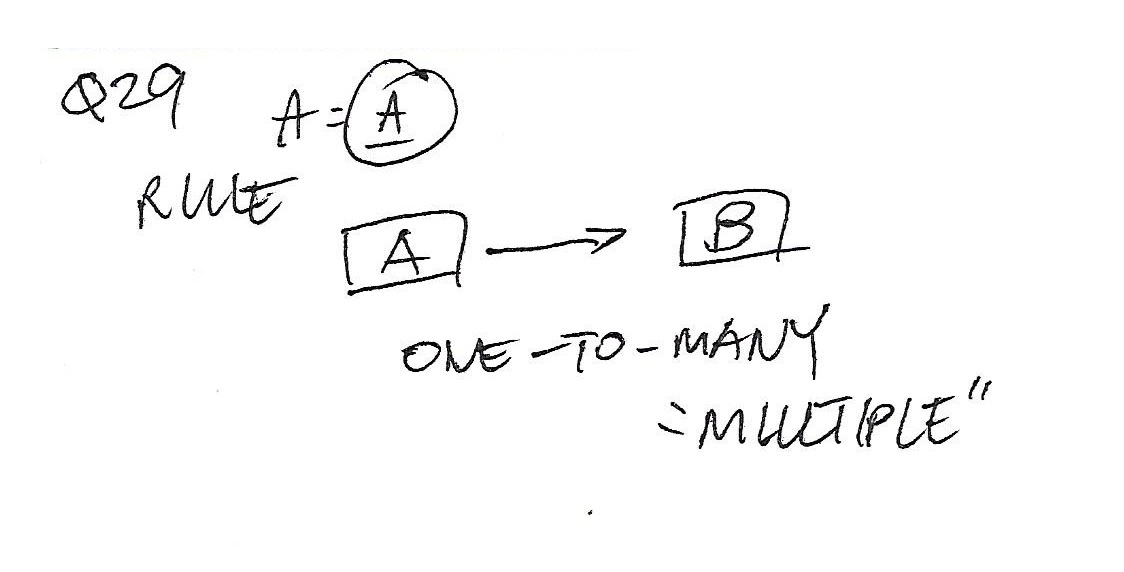 Q29
A = A
RULE
A → B
ONE-TO-MANY
=MULTIPLE"